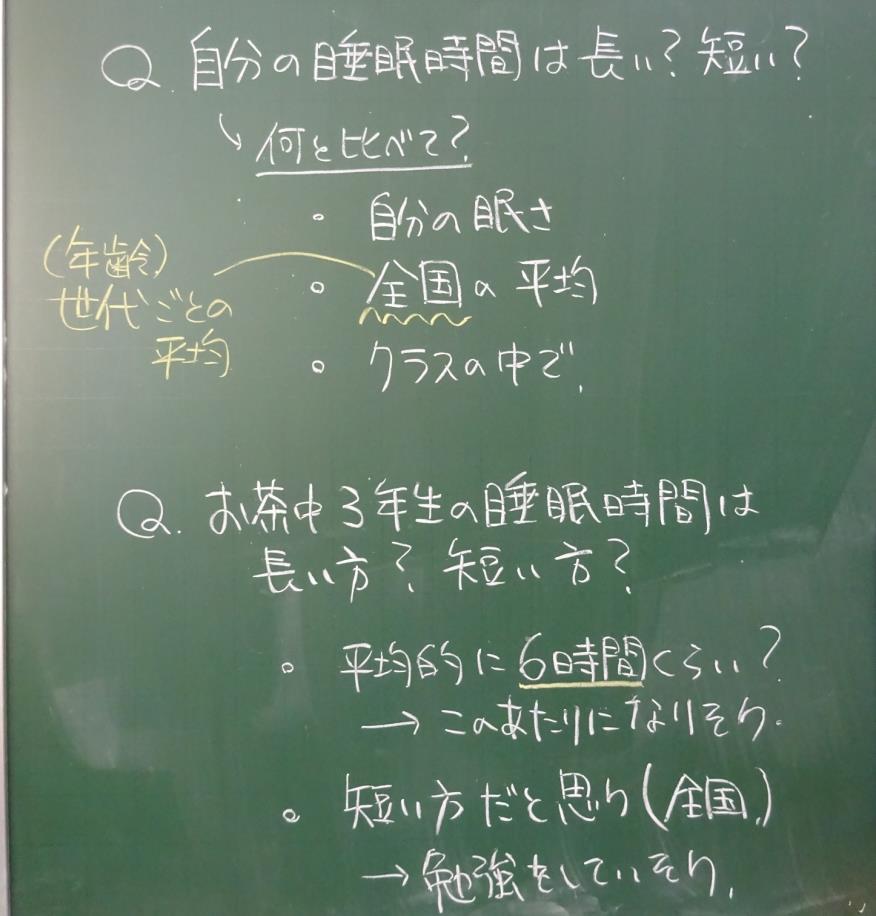 Q. 自分の睡眠時間は長い?短い?
↳ 何と比べて?
・ 自分の眠さ
(年齢)
世代ごとの
平均
・ 全国の平均
・ クラスの中で、
Q. お茶中3年生の睡眠時間は
長い方?短い方?
・ 平均的に6時間くらい?
→ このあたりになりそう。
・ 短い方だと思う(全国)
→ 勉強をしていそう。